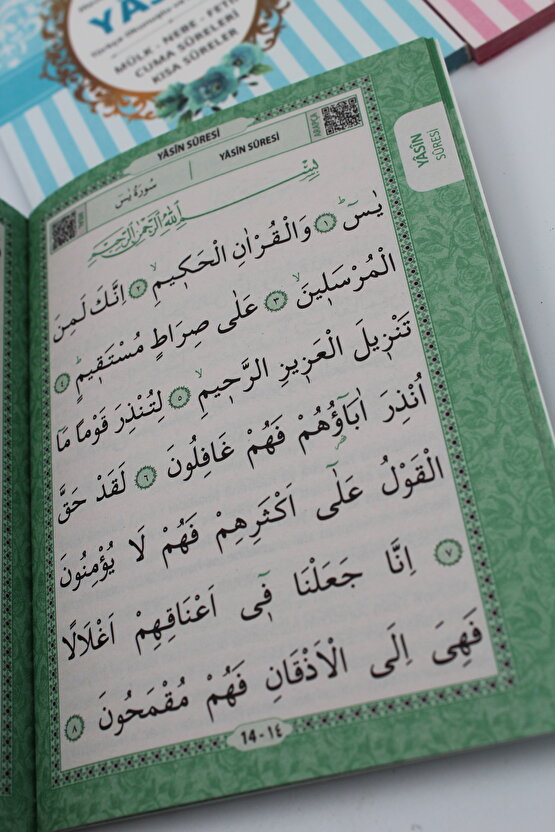 YASİ
MÜLK - NEBE - FETİH
CUMA SÛRELERİ
KISA SÛRELER
YÂSÎN SÛRESİ
سورة يٰسٓ
YÂSÎN SÛRESİ
ARAPÇA
YÂSÎN
SÛRESİ
بِسْمِ اللّٰهِ الرَّحْمٰنِ الرَّحٖيمِ
يٰسٓ ﴿١﴾ وَالْقُرْاٰنِ الْحَكٖيمِ ﴿٢﴾ اِنَّكَ لَمِنَ
الْمُرْسَلٖينَ ﴿٣﴾ عَلٰى صِرَاطٍ مُسْتَقٖيمٍ ﴿٤﴾
تَنْزٖيلَ الْعَزٖيزِ الرَّحٖيمِ ﴿٥﴾ لِتُنْذِرَ قَوْمًا مَٓا
اُنْذِرَ اٰبَٓاؤُ۬هُمْ فَهُمْ غَافِلُونَ ﴿٦﴾ لَقَدْ حَقَّ
الْقَوْلُ عَلٰٓى اَكْثَرِهِمْ فَهُمْ لَا يُؤْمِنُونَ
﴿٧﴾ اِنَّا جَعَلْنَا فٖٓى اَعْنَاقِهِمْ اَغْلَالًا
فَهِىَ اِلَى الْاَذْقَانِ فَهُمْ مُقْمَحُونَ ﴿٨﴾
14 - ١٤